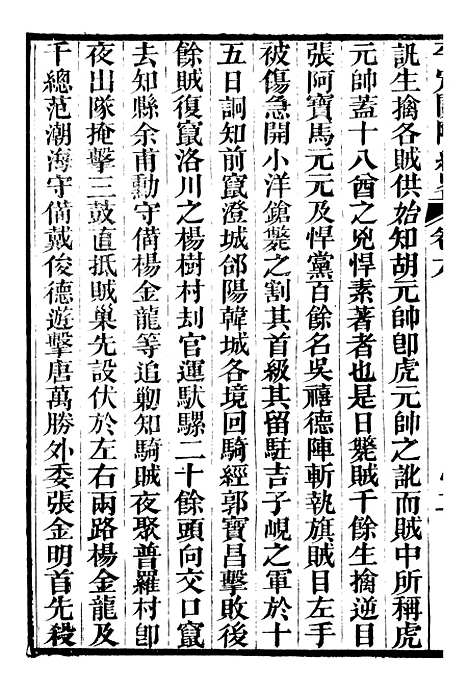 訛生擒各賊供始知胡元帥卽虎元帥之訛而賊中所稱虎
元帥蓋十八酋之兇悍素著者也是日斃賊千餘生擒逆目
張阿寶馬元元及悍黨百餘名吳禧德陣斬執旗賊目左手
被傷急開小洋鎗斃之割其首級其留駐吉子峴之軍於十
五日詗知前竄澄城郃陽韓城各境回騎經郭寶昌擊敗後
餘賊復竄洛川之楊樹村刦官運馱騾二十餘頭向交口竄
去知縣余甫勳守備楊金龍等追勦知騎賊夜聚普羅村卽
夜出隊掩擊三鼓直抵賊巢先設伏於左右兩路楊金龍及
千總范潮海守備戴俊德遊擊唐萬勝外委張金明首先殺